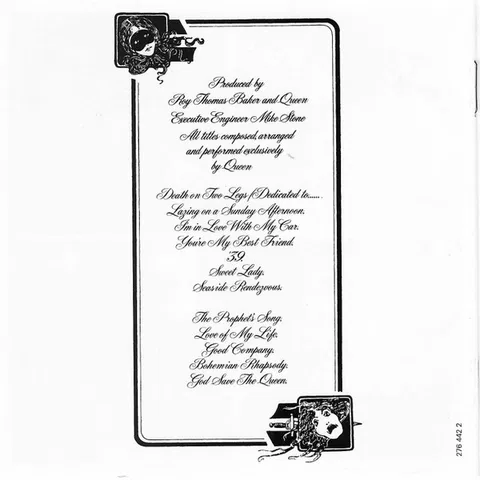 Produced by
Roy Thomas Baker and Queen
Executive Engineer Mike Stone
All titles composed, arranged
and performed exclusively
by Queen
Death on Two Legs (Dedicated to......
Lazing on a Sunday Afternoon.
I'm in Love With My Car.
You're My Best Friend.
'39.
Sweet Lady.
Seaside Rendezvous.
The Prophet's Song.
Love of My Life.
Good Company.
Bohemian Rhapsody.
God Save The Queen.
276 442 2